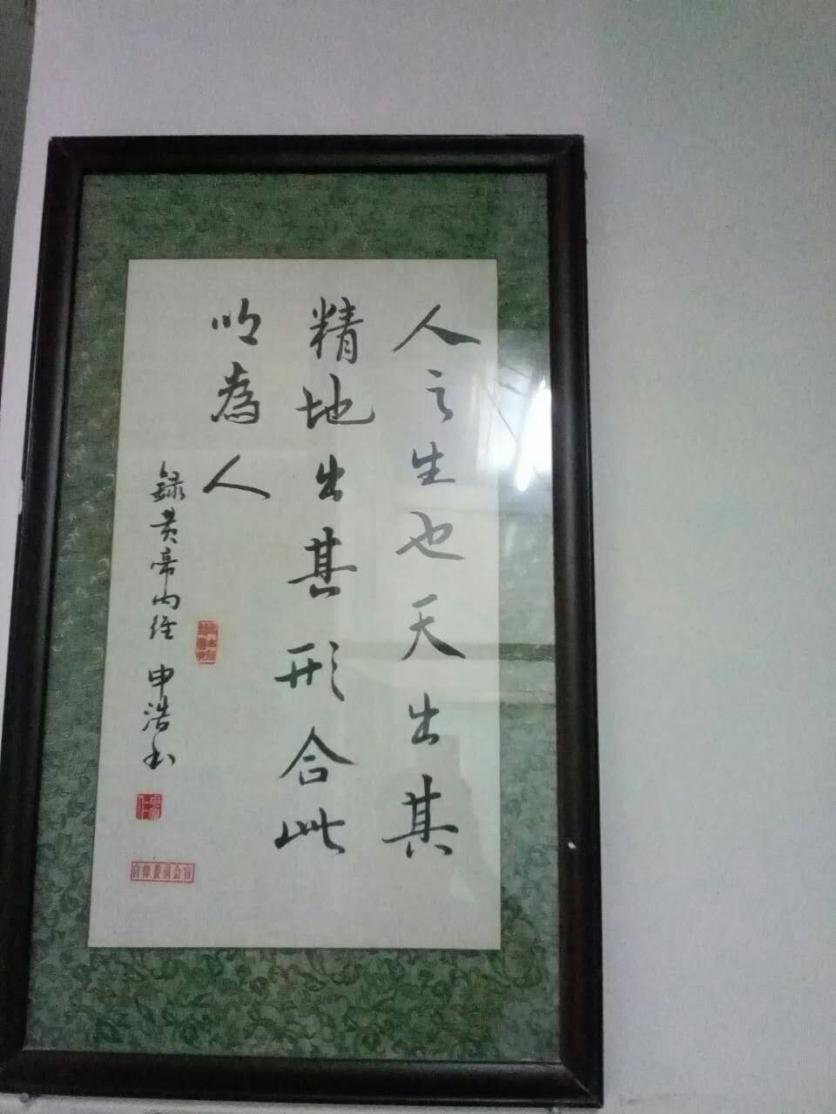 人之生也天出其
精地出其形合此
以為人
録黄帝内經 申浩书